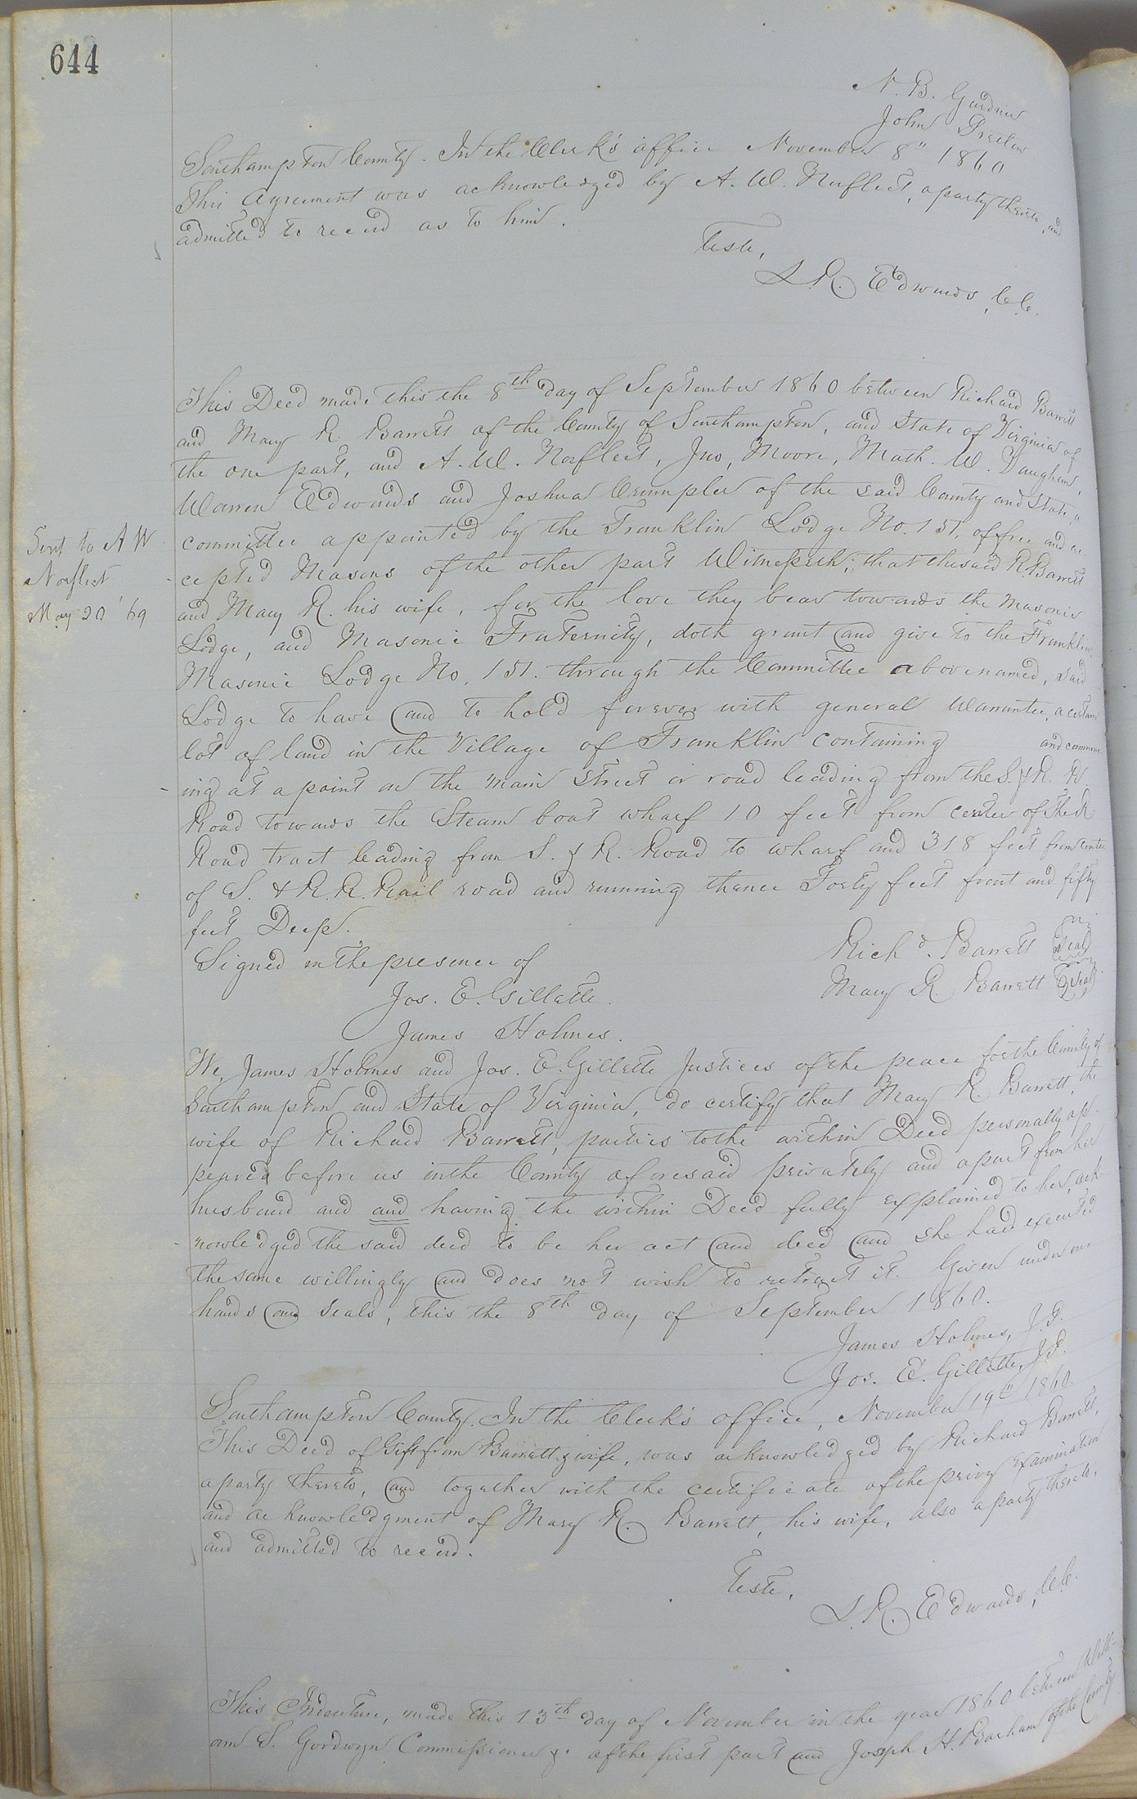 644
N. B. Gardner
John Pretlow
Southampton County. In the Clerk's office November 8" 1860
This Agreement was acknowledged by A. W. Norfleet, a party thereto, and
admitted to record as to him.
Teste,
L. R. Edwards, C.C.
This Deed made this the 8th day of September 1860 between Richard Barrett
and Mary R Barrett of the County of Southampton, and State of Virginia of
the one part, and A. W. Norfleet, Jno, Moore, Math. W. Vaughan,
Warren Edwards and Joshua Crumpler of the said County and State, a
committee appointed by the Franklin Lodge No. 151, of free and ac
cepted Masons of the other part Witnesseth; that the said R Barrett
and Mary R. his wife, for the love they bear towards the Masonic
Lodge, and Masonic Fraternity, doth grant and give to the Franklin
Masonic Lodge No. 151. through the Committee above named, said
Lodge to have and to hold forever with general Warrantee, a certain
lot of land in the Village of Franklin containing and commenc
ing at a point on the main Street or road leading from the S. & R. R
Road towards the Steam boat wharf 10 feet from center of the R
Road tract leading from S. & R. Road to wharf and 318 feet from center
of S. & R. R. Rail road and running thence Forty feet front and fifty
feet Deep.
Signed in the presence of
Rich'd. Barrett Seal
Jos. E. Gillette.
Mary R Barrett Seal
James Holmes.
Sent to A W
Norfleet
May 20 '69
We, James Holmes and Jos. E. Gillette Justices of the peace for the County of
Southampton and State of Virginia, do certify that Mary R Barrett, the
wife of Richard Barrett, parties to the within Deed personally ap-
peared before us in the County aforesaid privately and apart from her
husband and and having the within Deed fully explained to her, ack
nowledged the said deed to be her act and deed and she had executed
the same willingly and does not wish to retract it. Given under our
hands and seals, this the 8th day of September 1860.
James Holmes, J.P.
Jos. E. Gillette, J.P.
Southampton County. In the Clerk's office, November 19th 1860
This Deed of Gift from Barrett & wife, was acknowledged by Richard Barrett,
a party thereto, and together with the certificate of the privy examination
and acknowledgment of Mary R. Barrett, his wife, also a party thereto,
and admitted to record.
Teste,
L. R. Edwards, C.C.
This Indenture, made this 13th day of November in the year 1860 between Willi-
am S. Goodwyn Commissioner &c of the first part and Joseph H. Barham of the County